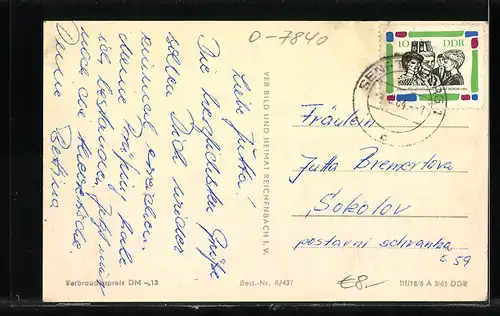 D-7840
Liebe Jutta!
Die herzlichsten Grüße
sollen Dich wieder
einmal erreichen.
Meine Prüfung habe
ich bestanden. Jetzt nur
noch die
Deine Bettina
VEB BILD UND HEIMAT REICHENBACH I. V.
10 DDR
SENF
Fräulein
Jutta Bremertova
Sokolov
postovni schranka
č. 59
Verbraucherpreis DM -,15
Best.-Nr. 6/437
€8.-
III/18/6 A 3/61 DDR